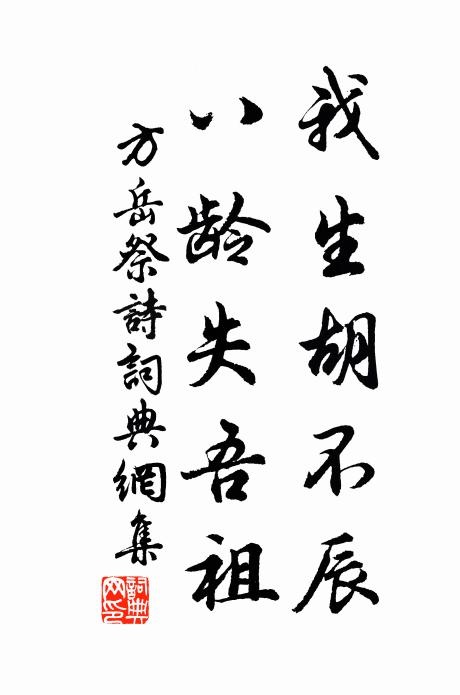 我生胡不辰
八龄失吾祖
方岳祭詩詞典網集
詞典
网印